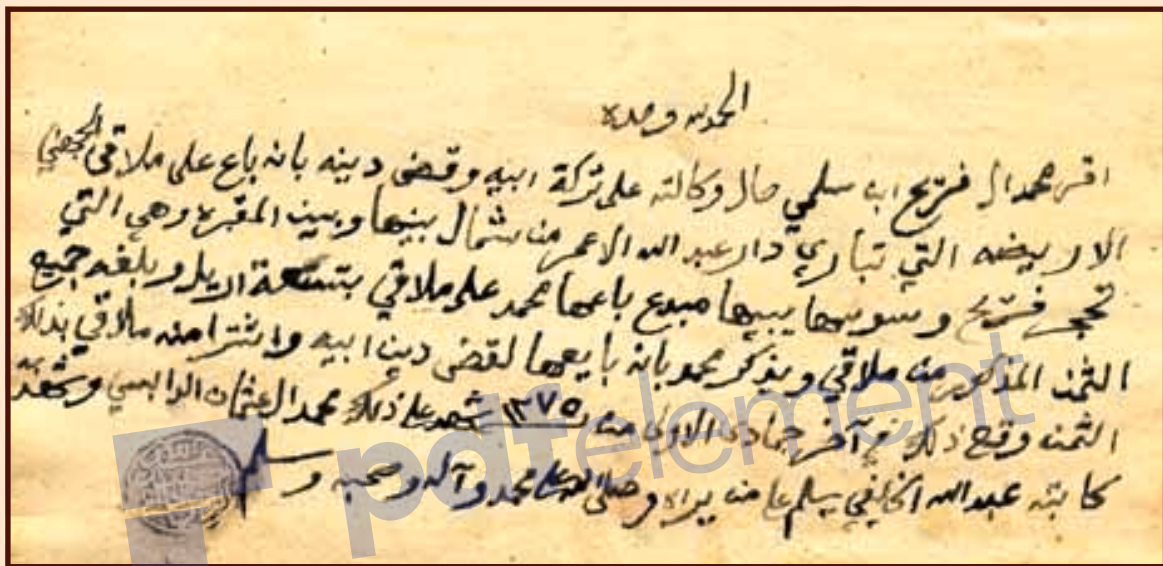 الحمد لله وحده
اقر محمد ال فريح اب سلمي حال وكالته على تركة ابيه وقضى دينه بانه باع على ملاقي الجهني
الاريضه التي تباري دار عبد الله الاعمر من شمال بينها وبين المقبره وهي التي
تحجر فريح وسويها بيبها مبدع باعها محمد على ملاقي بتسعة اريل وبلغه جميع
الثمن المذكور من ملاقي ويذكر محمد بانه بايعها لقضى دين ابيه واشترا منه ملاقي بذلك
الثمن وقع ذلك في آخر جمادى الاولى من ١٣٧٥ شهد على ذلك محمد العثمان وشهد
كاتبه عبد الله الخليفي يسلم عا من يراه وصلى الله على محمد وآله وصحبه وسلم
pdfelement